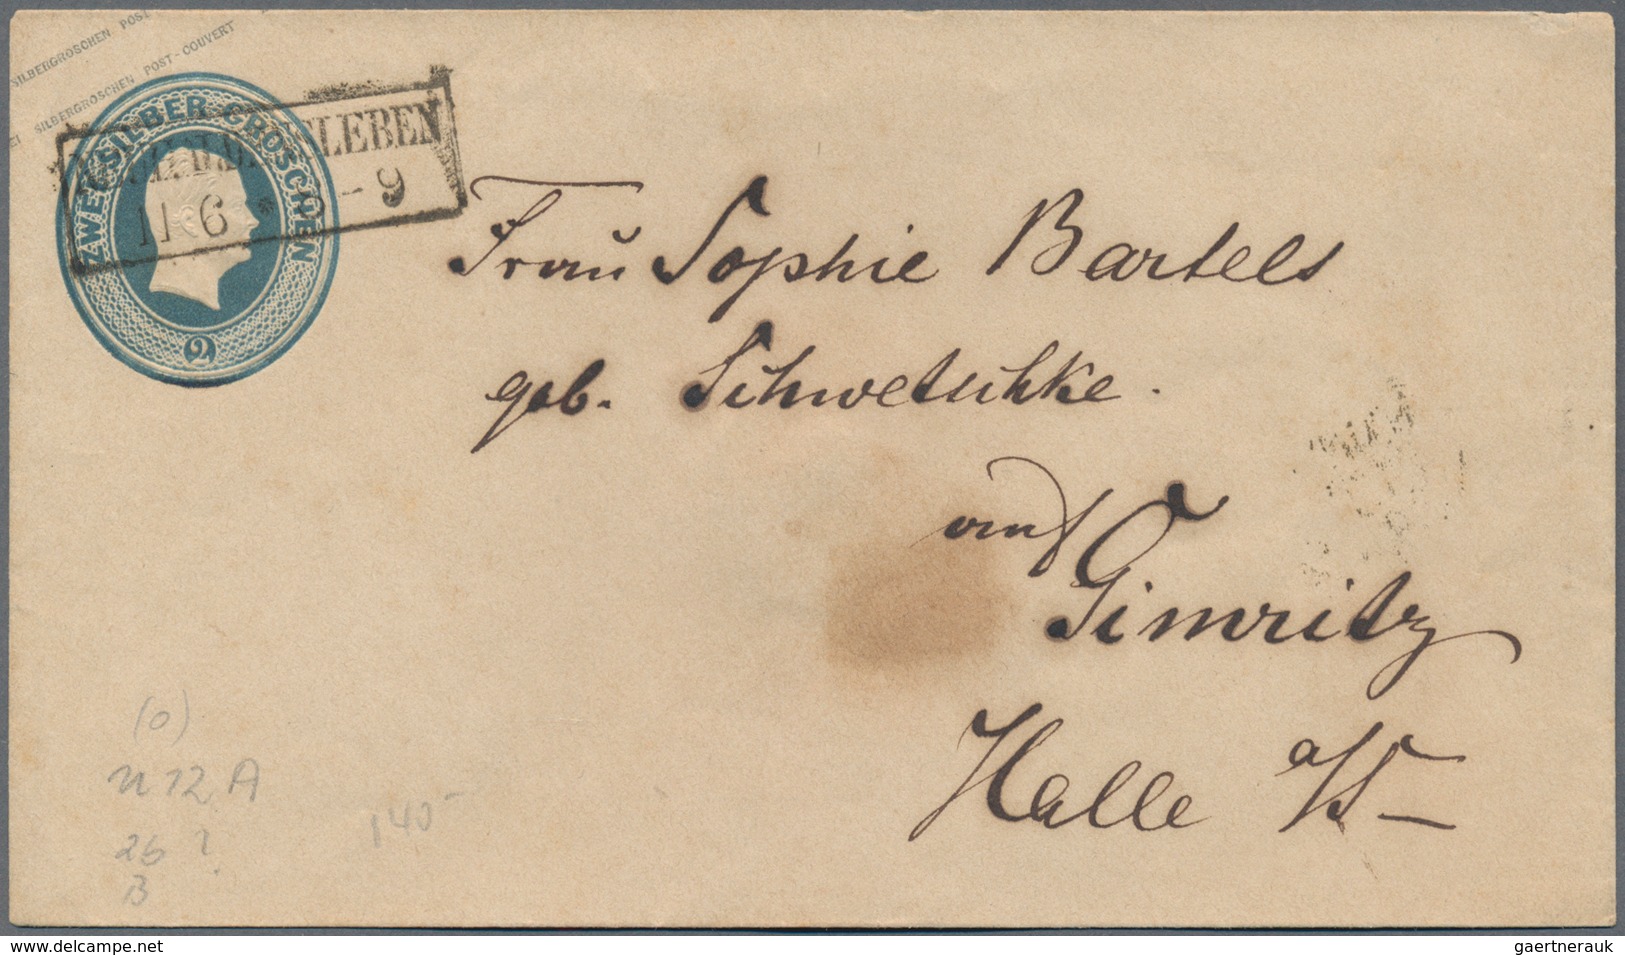 SILBERGROSCHEN POST
SILBERGROSCHEN POST-COUVERT
ZWEI SILBER-GROSCHEN
2
11 6 * - 9
Frau Sophie Bartels
geb. Schwetschke.
auf
Gimritz
Halle a/S —
(o)
U 12 A
26 ?
B
140 -
www.delcampe.net
gaertnerauk